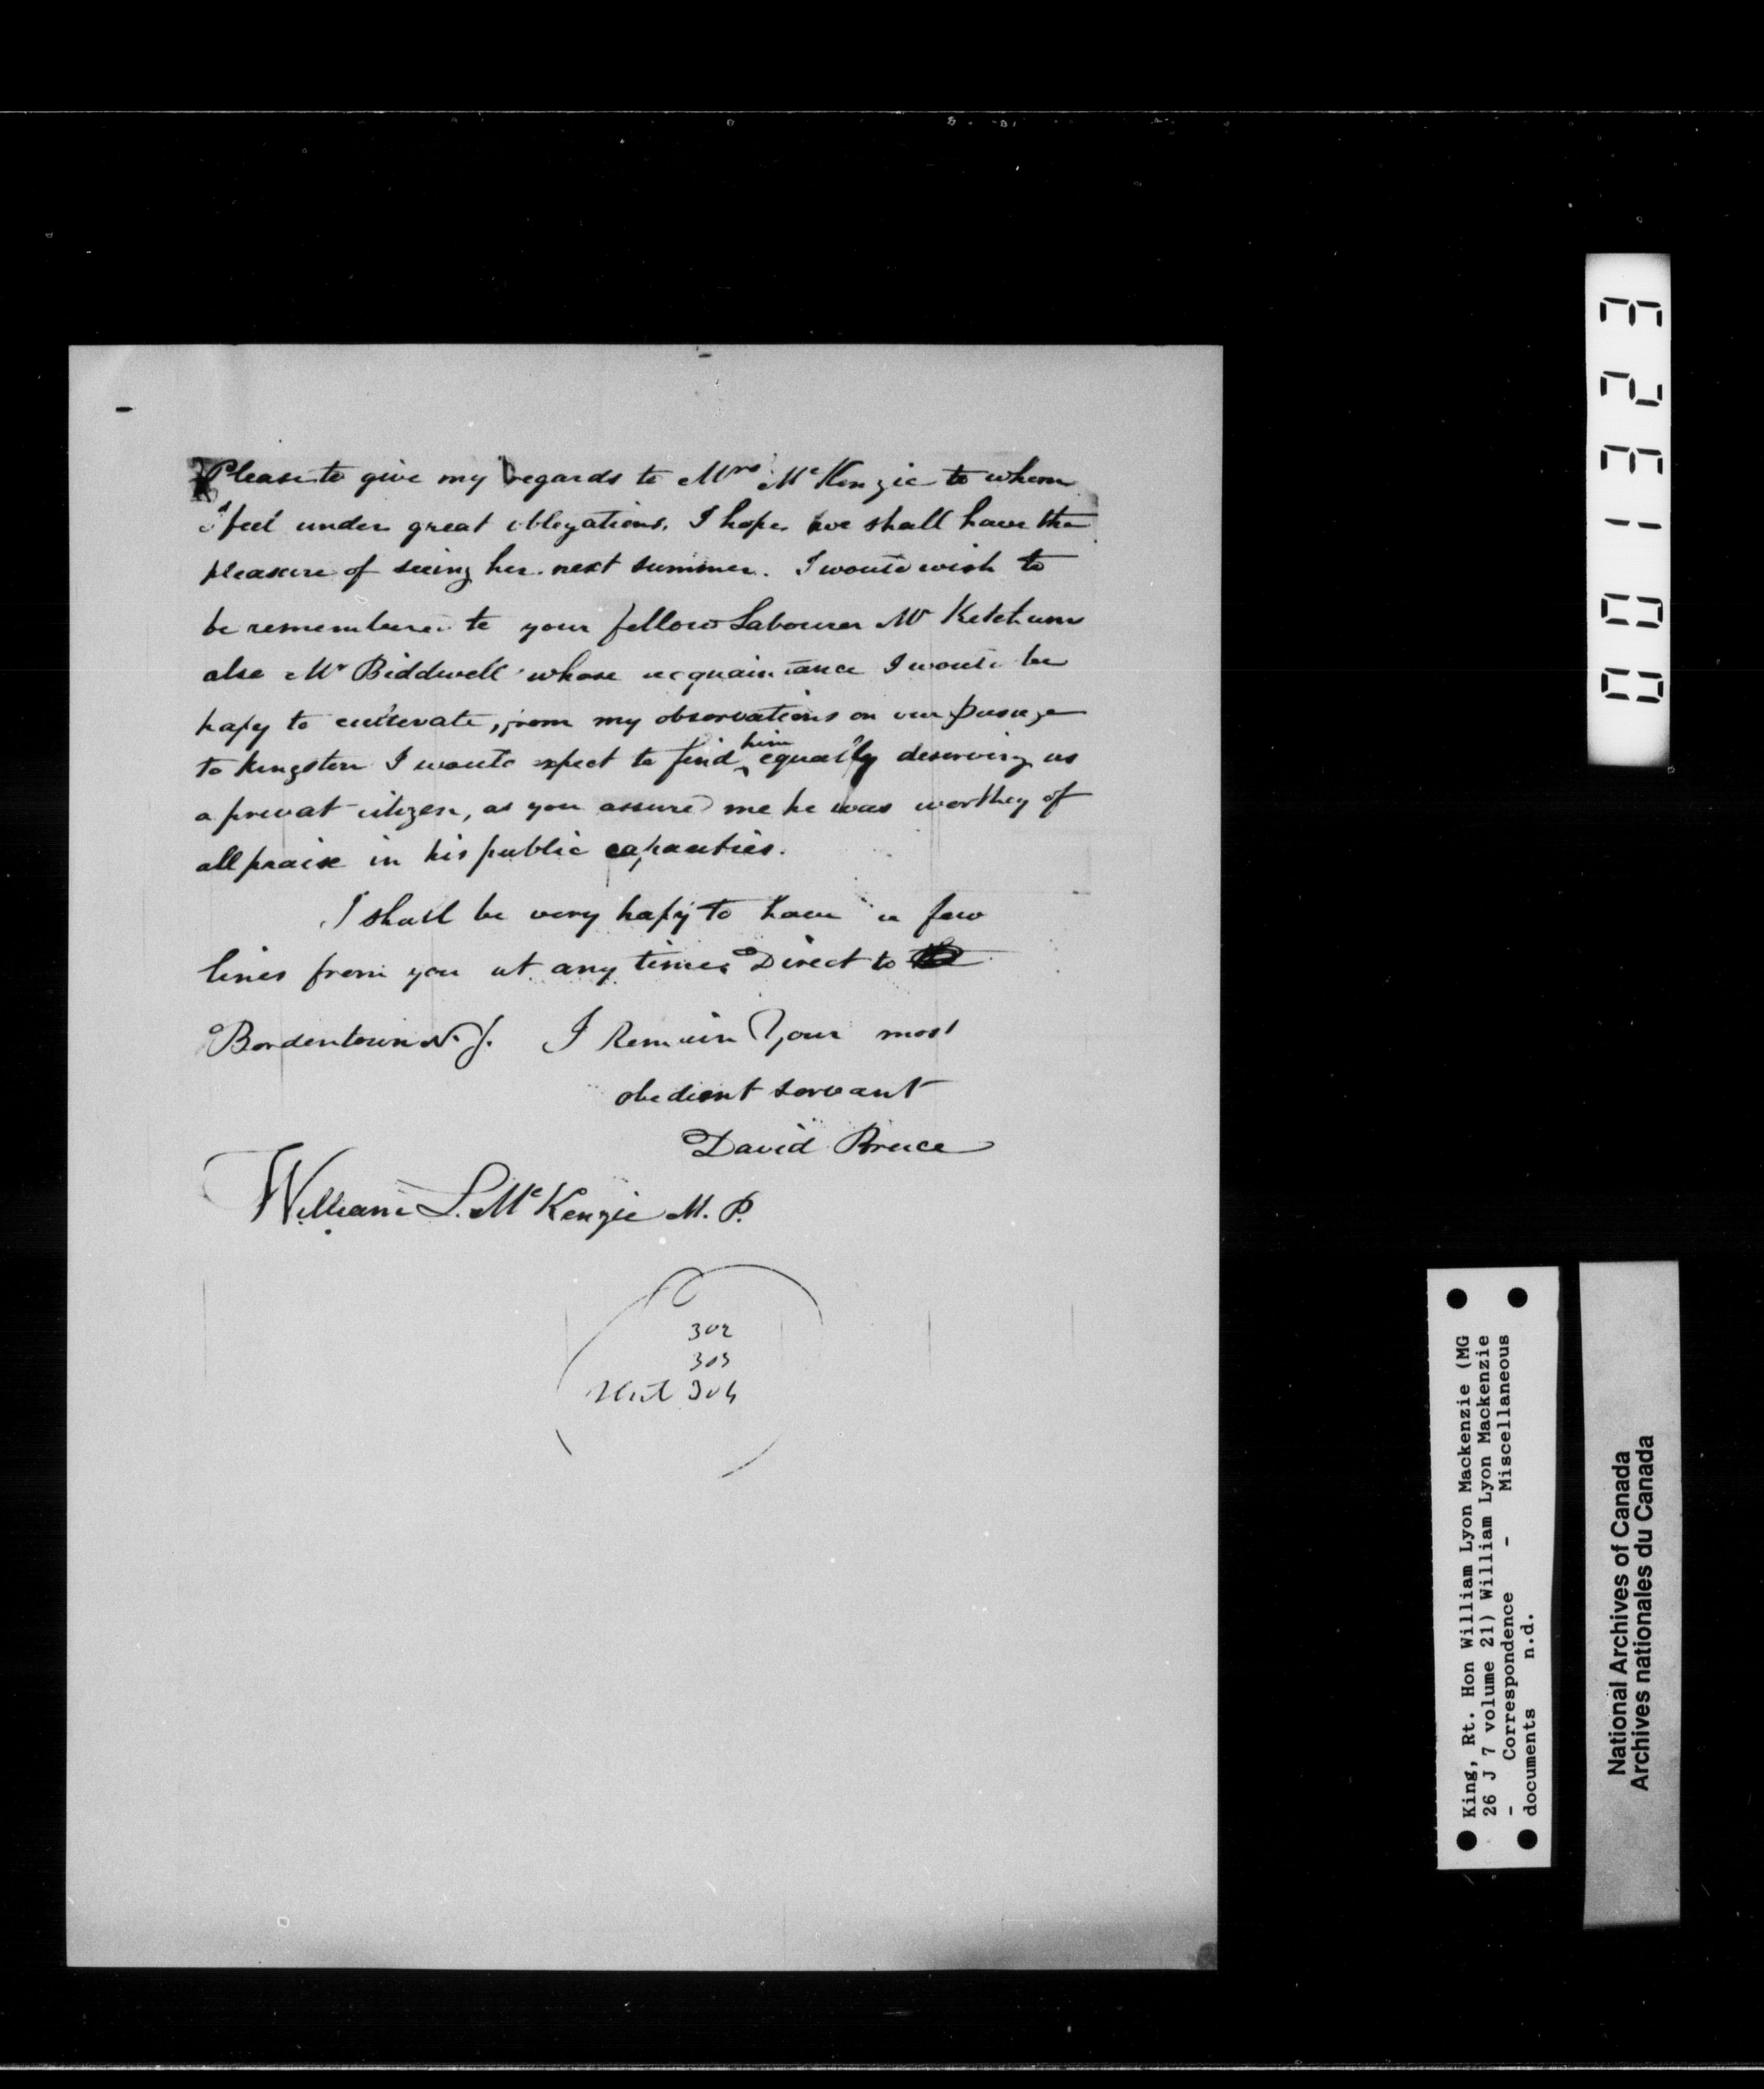 Please to give my regards to Mrs McKenzie to whom
I feel under great obligations. I hope we shall have the
pleasure of seeing her next summer. I would wish to
be remembered to your fellow Labourer Mr Ketchum
also Mr Biddwell whose acquaintance I would be
hapy to cultevate, from my observations on our pasage
to Kingston I would expect to find him equally deserving as
a privat citizen, as you assured me he was worthey of
all praise in his public capacities.
I shall be very hapy to have a few
lines from you at any time. Direct to
Bordentown N.J. I Remain Your most
obedient servant
David Bruce
William L. McKenzie M.P.
302
303
304
001323
King, Rt. Hon William Lyon Mackenzie (MG
26 J 7 volume 21) William Lyon Mackenzie
- Correspondence - Miscellaneous
documents n.d.
National Archives of Canada
Archives nationales du Canada